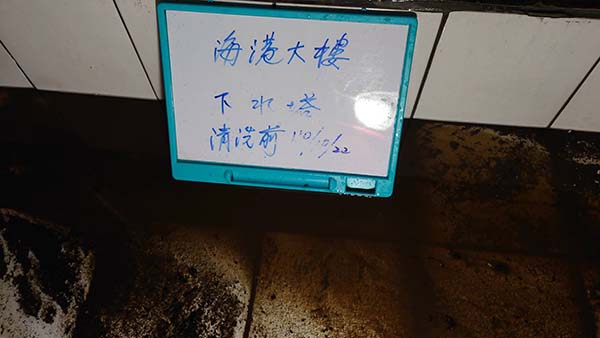 海港大樓
下水塔
清洗前 110/10/22